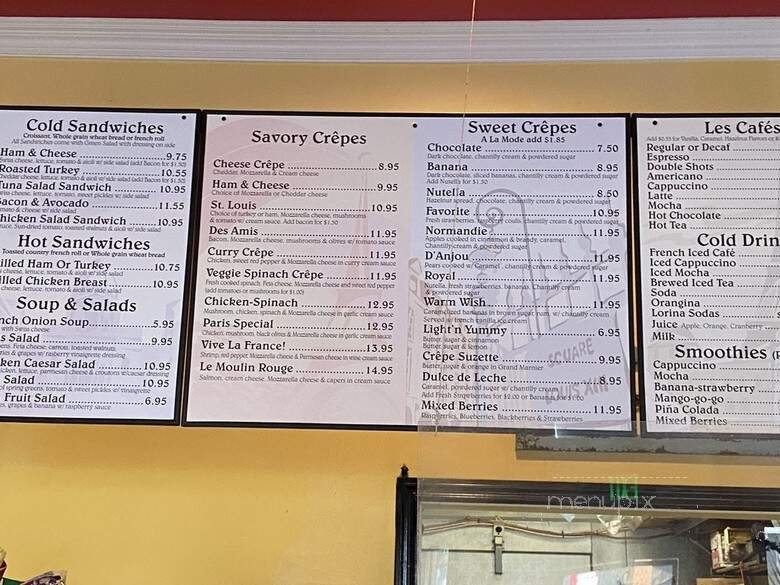 Cold Sandwiches
Croissant, Whole grain wheat bread or french roll
All Sandwiches come with Green Salad with dressing on side
Ham & Cheese 9.75
Swiss cheese, lettuce, tomato & aioli w/ side salad (add Bacon for $1.50)
Roasted Turkey 10.55
Cheddar cheese, lettuce, tomato & aioli w/ side salad (add Bacon for $1.50)
Tuna Salad Sandwich 10.95
cheese, lettuce, tomato, sweet pickles w/ side salad
Bacon & Avocado 11.55
tomato & cheese w/ side salad
Chicken Salad Sandwich 10.95
Sun-dried tomato, roasted walnuts & aioli w/ side salad
Hot Sandwiches
Toasted country french roll or Whole grain wheat bread
illed Ham Or Turkey 10.75
cheese, lettuce, tomato & aioli w/ side salad
illed Chicken Breast 10.95
cheese, lettuce, tomato & side salad
Soup & Salads
nch Onion Soup 5.95
with Swiss cheese
s Salad 9.95
ens, Feta cheese, carrots, toasted walnuts,
ries & grapes w/ raspberry vinaigrette dressing
ken Caesar Salad 10.95
chicken, lettuce, parmesan cheese & croutons w/ caesar dressing
Salad 10.95
of spring greens, tomato & sweet pickles w/ vinaigrette
Fruit Salad 6.95
es, grapes & banana w/ raspberry sauce
Savory Crêpes
Cheese Crêpe 8.95
Cheddar, Mozzarella & Cream cheese
Ham & Cheese 9.95
Choice of Mozzarella or Cheddar cheese
St. Louis 10.95
Choice of turkey or ham, Mozzarella cheese, mushrooms
& tomato w/ cream sauce. Add bacon for $1.50
Des Amis 11.95
Bacon, Mozzarella cheese, mushrooms & olives w/ tomato sauce
Curry Crêpe 11.95
Chicken, sweet red pepper & Mozzarella cheese in curry cream sauce
Veggie Spinach Crêpe 11.95
Fresh cooked spinach, Feta cheese, Mozzarella cheese and sweet red pepper
(add tomatoes or mushrooms for $1.00)
Chicken-Spinach 12.95
Mushroom, chicken, spinach & Mozzarella cheese in garlic cream sauce
Paris Special 12.95
Chicken, mushroom, black olives & Mozzarella cheese in garlic cream sauce
Vive La France! 13.95
Shrimp, red pepper, Mozzarella cheese & Parmesan cheese in wine cream sauce
Le Moulin Rouge 14.95
Salmon, cream cheese, Mozzarella cheese & capers in cream sauce
Sweet Crêpes
A La Mode add $1.85
Chocolate 7.50
Dark chocolate, chantilly cream & powdered sugar
Banana 8.95
Dark chocolate, sliced bananas, chantilly cream & powdered sugar
Add Nutella for $1.50
Nutella 8.50
Hazelnut spread, chocolate, chantilly cream & powdered sugar
Favorite 10.95
Fresh strawberries, yogurt or coulis, chantilly cream & powdered sugar
Normandie 11.95
Apples cooked in cinnamon & brandy, caramel,
Chantilly cream & powdered sugar
D'Anjou 11.95
Pears cooked w/ Caramel, chantilly cream & powdered sugar
Royal 11.95
Nutella, fresh strawberries, bananas, Chantilly cream
& powdered sugar
Warm Wish 11.95
Caramelized bananas in brown sugar, rum, w/ chantilly cream
Served w/ french vanilla ice cream
Light'n Yummy 6.95
Butter, sugar & cinnamon
Butter, sugar & lemon
Crêpe Suzette 9.95
Butter, sugar & orange in Grand Marnier
Dulce de Leche 8.95
Caramel, powdered sugar w/ chantilly cream
Add Fresh Strawberries for $2.00 or Banana for $1.00
Mixed Berries 11.95
Raspberries, Blueberries, Blackberries & Strawberries
SQUARE
Les Cafés
Add $0.55 for Vanilla, Caramel, Hazelnut Flavors
Regular or Decaf
Espresso
Double Shots
Americano
Cappuccino
Latte
Mocha
Hot Chocolate
Hot Tea
Cold Drin
French Iced Café
Iced Cappuccino
Iced Mocha
Brewed Iced Tea
Soda
Orangina
Lorina Sodas
Juice Apple, Orange, Cranberry
Milk
Smoothies
Cappuccino
Mocha
Banana-strawberry
Mango-go-go
Piña Colada
Mixed Berries
menupix